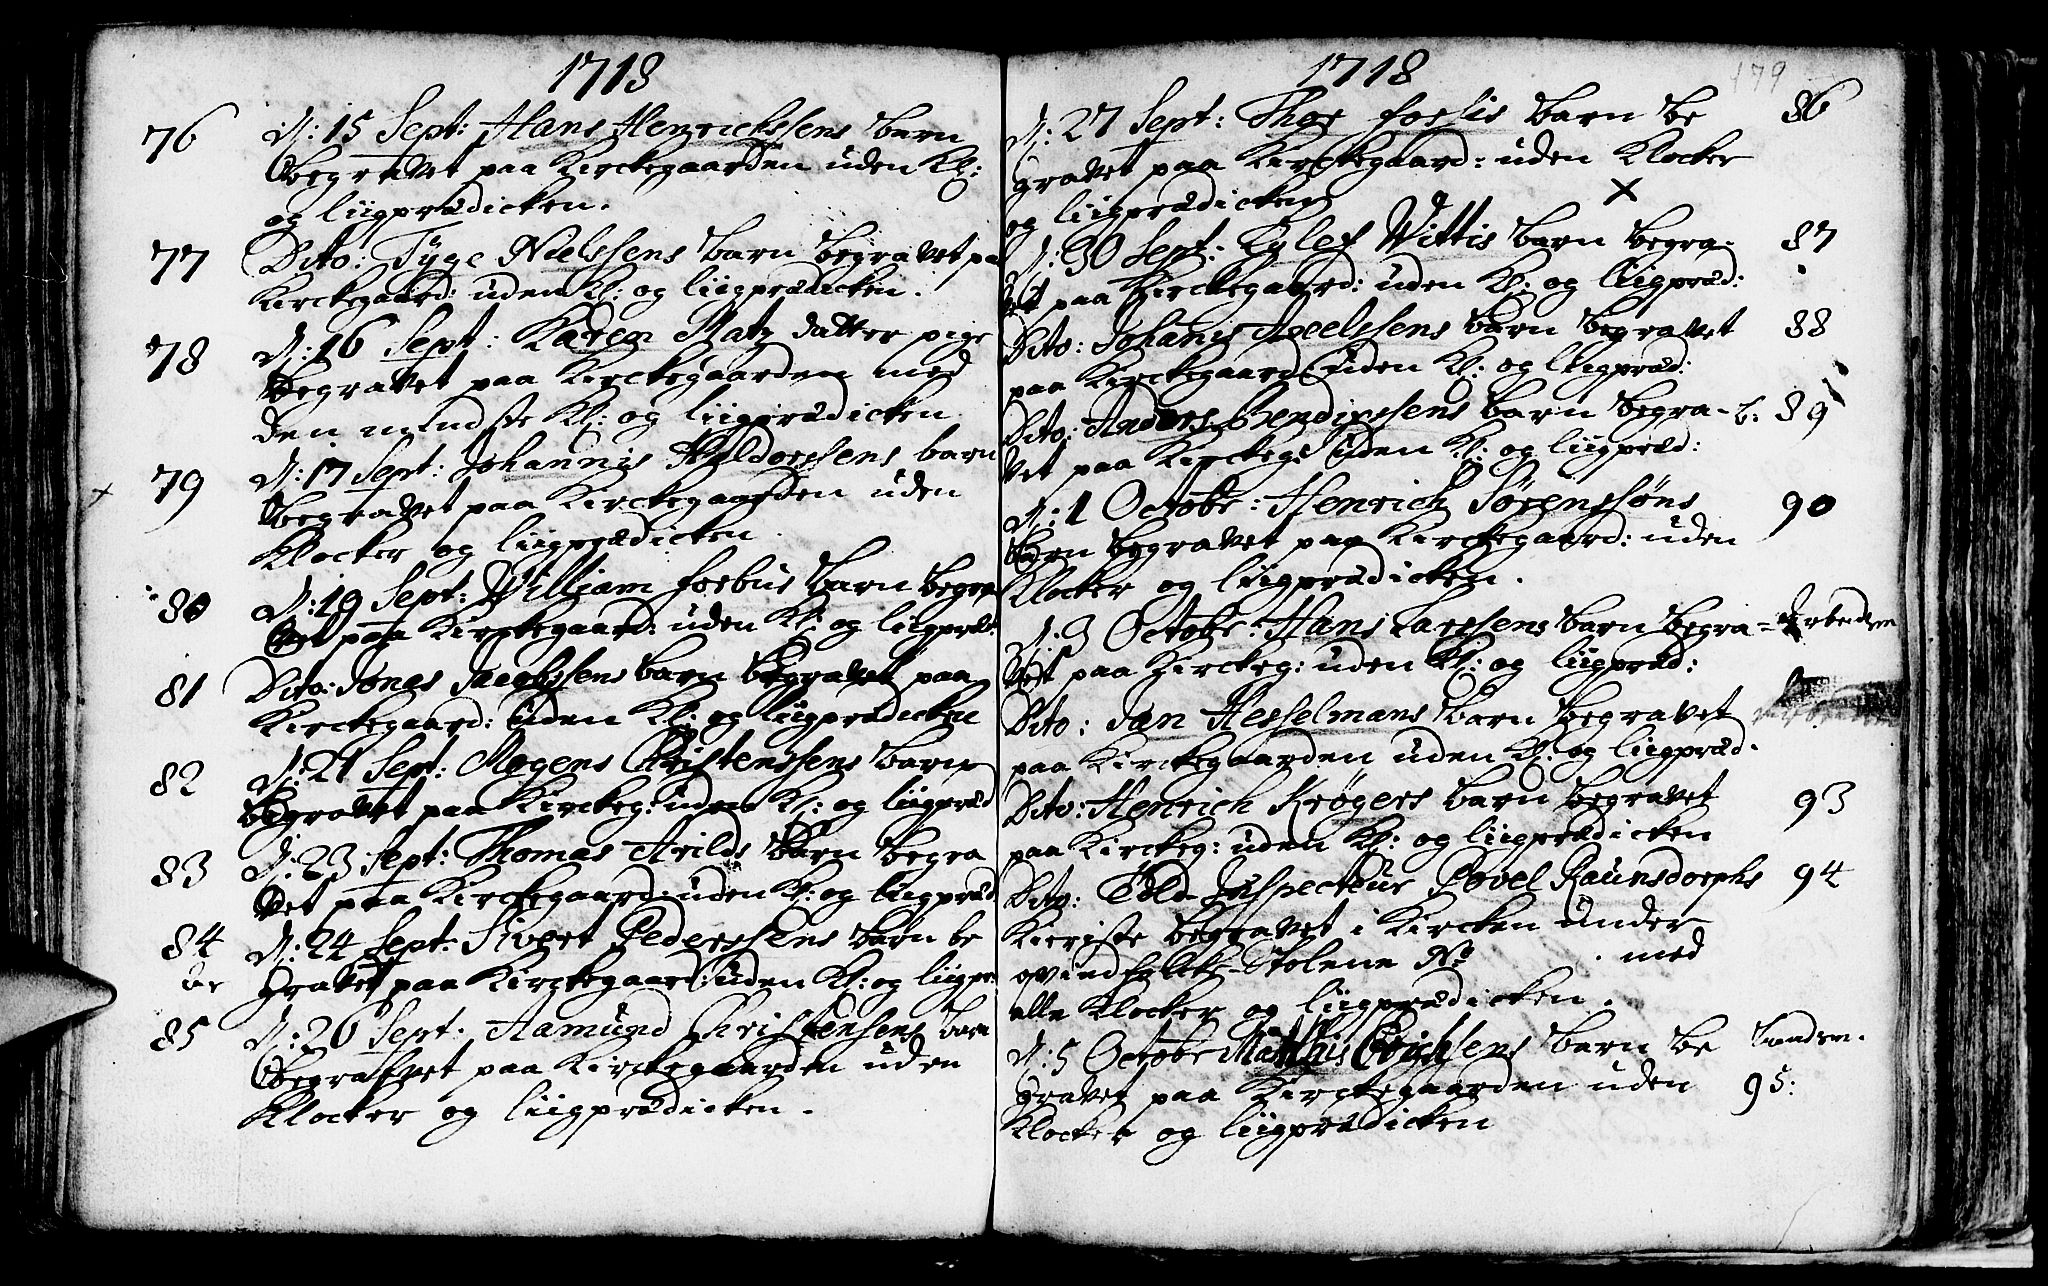 1718
76 D: 15 Sept: Hans Henrichssens barn
Begravet paa Kirckegaarden uden Kl:
og liigprædicken.
77 Dito: Tÿge Nielssens barn begravet pa
Kirckegaard: uden Kl: og liigprædicken.
78 D: 16 Sept: Karen Matz datter pige
begravet paa Kirckegaarden med
den mindste Kl: og liigprædicken
79 D: 17 Sept: Johannis Haldorssens barn
begravet paa Kirckegaarden uden
Klocker og liigprædicken.
80 D: 19 Sept: William forbus barn begra
vet paa Kirckegaard: uden Kl: og liigpræd:
81 Dito: Jonas Jacobssens barn begravet paa
Kirckegaard: uden Kl: og liigprædicken
82 D: 21 Sept: Mogens Christenssens barn
begravet paa Kirckeg: uden Kl: og liigpræd
83 D: 23 Sept: Thomas Arilds barn begra
vet paa Kirckegaard: uden Kl: og liigpræd
84 D: 24 Sept: Sivert Pederssens barn be
gravet paa Kirckegaard: uden Kl: og liigpr:
85 D: 26 Sept. Aamund Christensens barn
begravet paa Kirckegaarden uden
Klocker og liigprædicken.
1718
179
D: 27 Sept: Thor forsis barn be 86
gravet paa Kirckegaard: uden Klocker
og liigprædicken
D: 30 Sept: Eylef Wittis barn begra- 87
vet paa Kirckegaard: uden Kl: og liigpræd:
Dito: Johanis Axelssens barn begravet 88
paa Kirckegaard: uden Kl: og liigpræd:
Dito: Anders Bendixssens barn begra- b. 89
vet paa Kirckeg: uden Kl: og liigpræd:
D: 1 Octobr: Henrich Sørenssøns 90
barn begravet paa Kirckegaard: uden
Klocker og liigprædicken.
D: 3 Octobr: Hans Larssens barn begra=
vet paa Kirckeg: uden Kl: og liigpræd:
Dito: Jan Hesselmans barn begravet
paa Kirckegaarden uden Kl: og liigpræd.
Dito: Henrich Krøgers barn begravet 93
paa Kirckeg: uden Kl: og liigprædicken
Dito: Told Inspecteur Povel Raunsdorphs 94
Kieriste begravet i Kircken under
qvindfolck-Stolene No . med
alle Klocker og liigprædicken.
D: 5 Octobr Matthis Erichssens barn be
gravet paa Kirckegaarden uden 95:
Klocker og liigprædicken